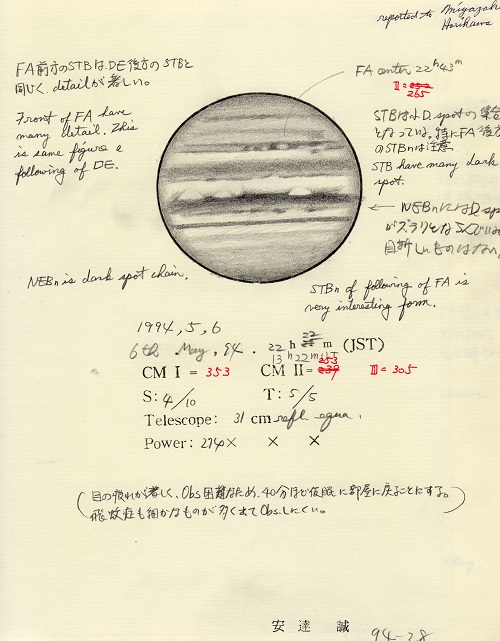 reported to Miyazaki
Horikawa
FA前方のSTBは、DE後方のSTBと
同じく、detailが著しい。
FA center 22h43m
II = 265
Front of FA have
many detail. This
is same figure
following of DE.
STBはD. spotの集合
となっている。特にFA後方
のSTBnは注意
STB have many dark
spot.
← NEBnにはD. sp
目新しいものはない。
NEBn is dark spot chain.
STBn of following of FA is
very interesting form.
1994, 5, 6
6th. May, 94. 22 h 22 m (JST)
13h22m UT
CM I = 353 CM II = 253 III = 305
S: 4/10 T: 5/5
Telescope: 31 cm refl. equa.
Power: 274× × ×
(目の疲れが著しく、Obs困難なため、40分ほど仮眠に部屋に戻ることにする。
飛蚊症も細かなものが多く出てObs.しにくい。)
安達 誠
94-28